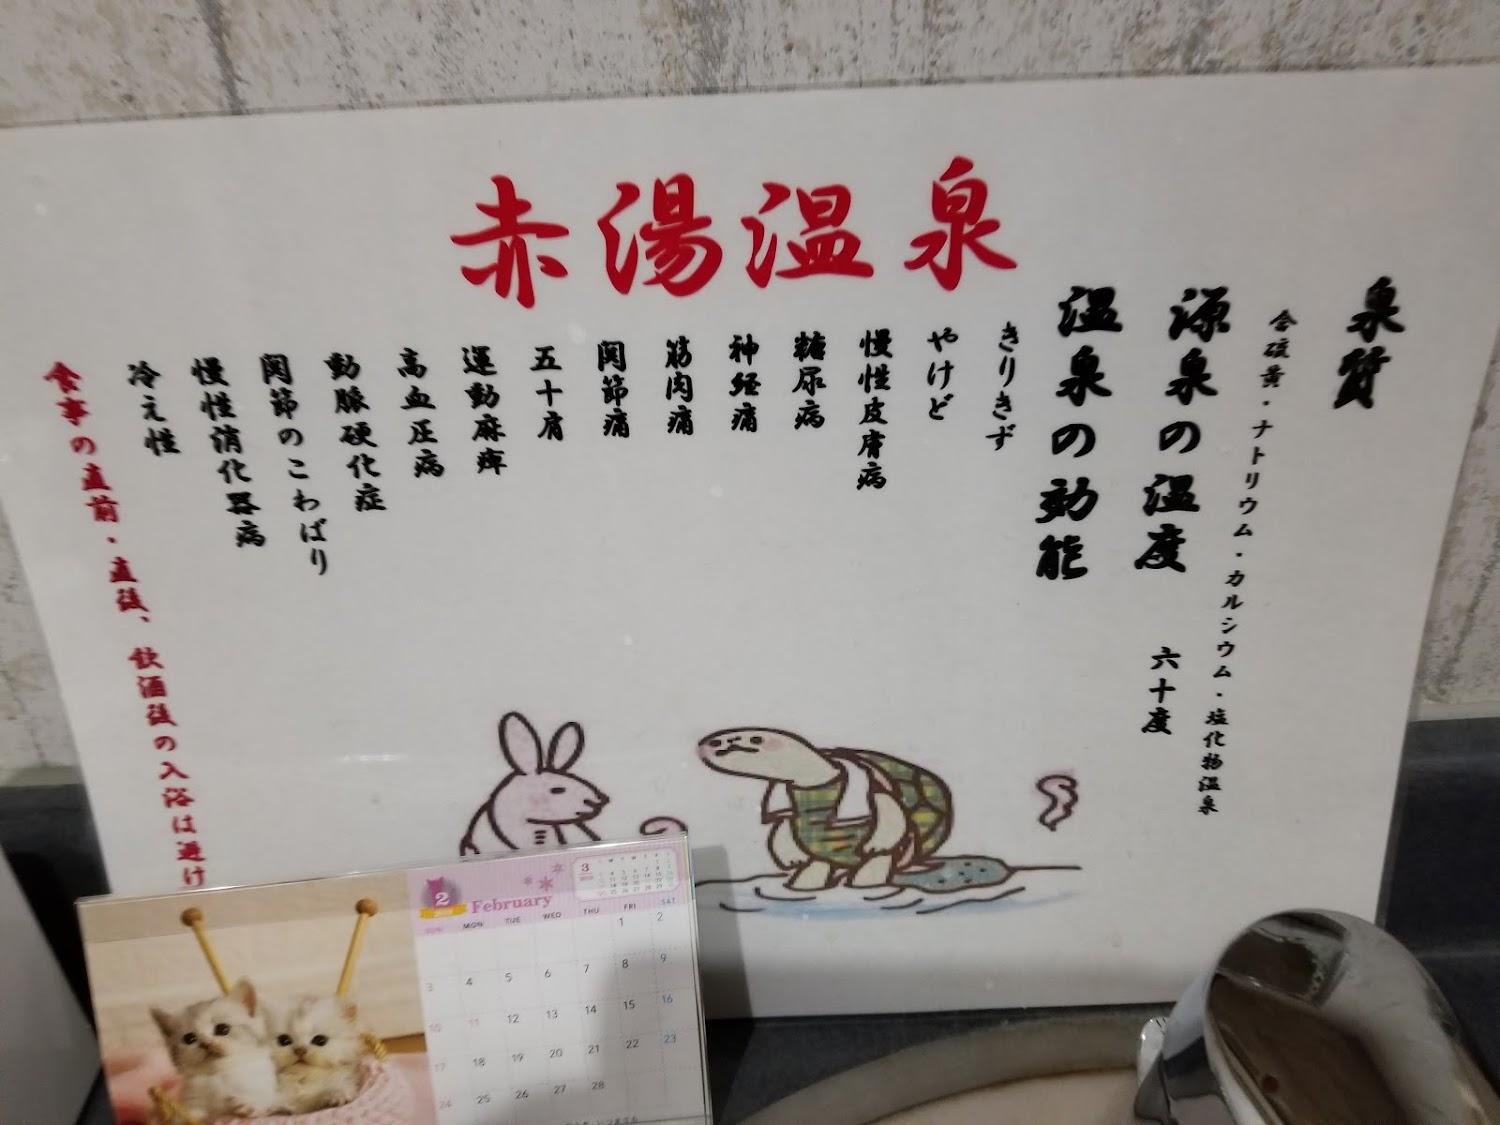 赤湯温泉
泉質
含硫黄・ナトリウム・カルシウム・塩化物温泉
源泉の温度 六十度
温泉の効能
きりきず
やけど
慢性皮膚病
糖尿病
神経痛
筋肉痛
関節痛
五十肩
運動麻痺
高血圧病
動脈硬化症
関節のこわばり
慢性消化器病
冷え性
食事の直前・直後、飲酒後の入浴は避け
2
February
3
SUN MON TUE WED THU FRI SAT
1 2
3 4 5 6 7 8 9
10 11 12 13 14 15 16
17 18 19 20 21 22 23
24 25 26 27 28